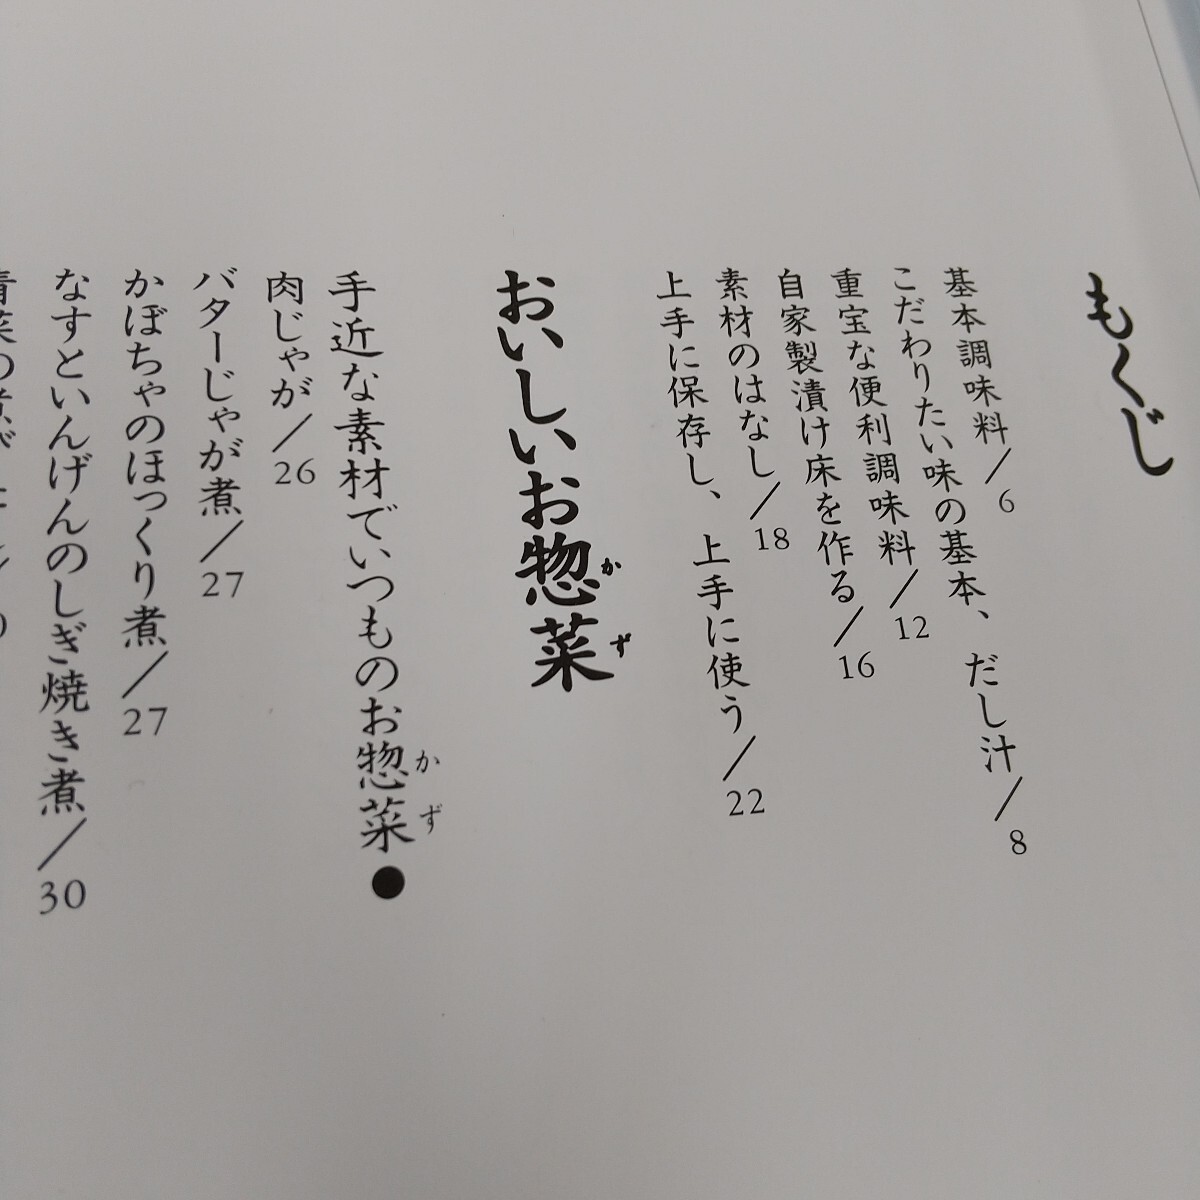 もくじ
基本調味料／6
こだわりたい味の基本、だし汁／8
重宝な便利調味料／12
自家製漬け床を作る／16
素材のはなし／18
上手に保存し、上手に使う／22
おいしいお惣菜
かず
手近な素材でいつものお惣菜●
かず
肉じゃが／26
バターじゃが煮／27
かぼちゃのほっくり煮／27
なすといんげんのしぎ焼き煮／30
青菜の煮び